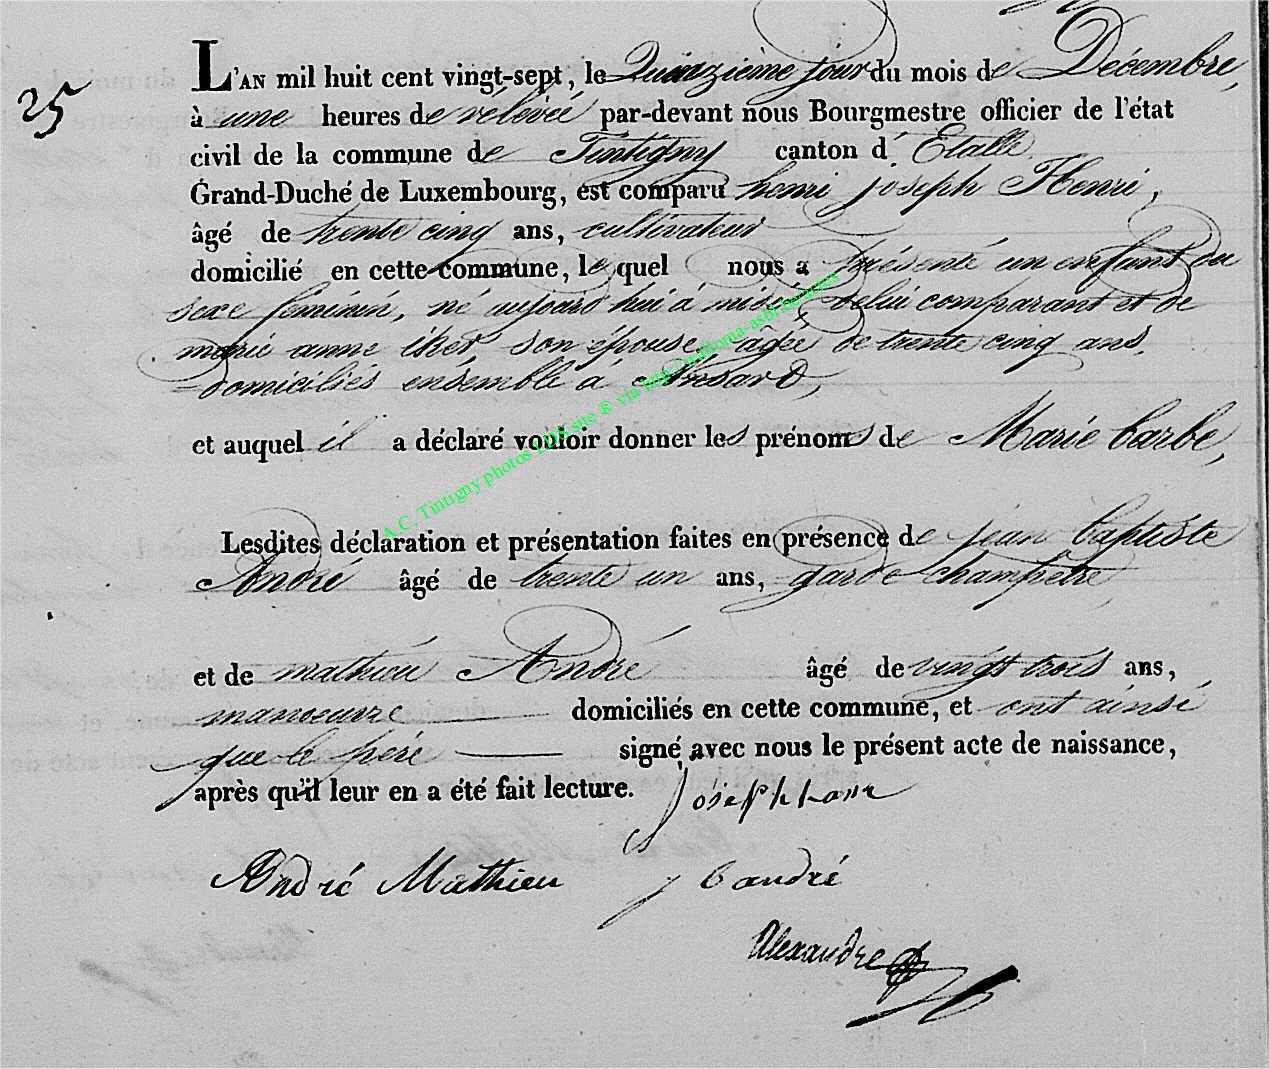 25
L'AN mil huit cent vingt-sept, le Quinzième jour du mois de Décembre,
à une heures de rélévée par-devant nous Bourgmestre officier de l'état
civil de la commune de Tintigny canton d'Etalle
Grand-Duché de Luxembourg, est comparu henri joseph Henri,
âgé de trente cinq ans, cultivateur
domicilié en cette commune, le quel nous a présenté un enfant du
sexe féminin, né aujourd'hui à midi, de lui comparant et de
marie anne son épouse, âgée de trente cinq ans,
domiciliés ensemble à Ansart,
et auquel il a déclaré vouloir donner les prénoms de Marie barbe,
Lesdites déclaration et présentation faites en présence de jean baptiste
André âgé de trente un ans, garde champêtre
et de mathieu André âgé de vingt trois ans,
manoeuvre domiciliés en cette commune, et ont ainsi
que le père signé avec nous le présent acte de naissance,
après qu'il leur en a été fait lecture.
Joseph
André Mathieu j b andré
Alexandre
A.C. Tintigny photos LDS site ® via http://wallonia-asbl.be/actes